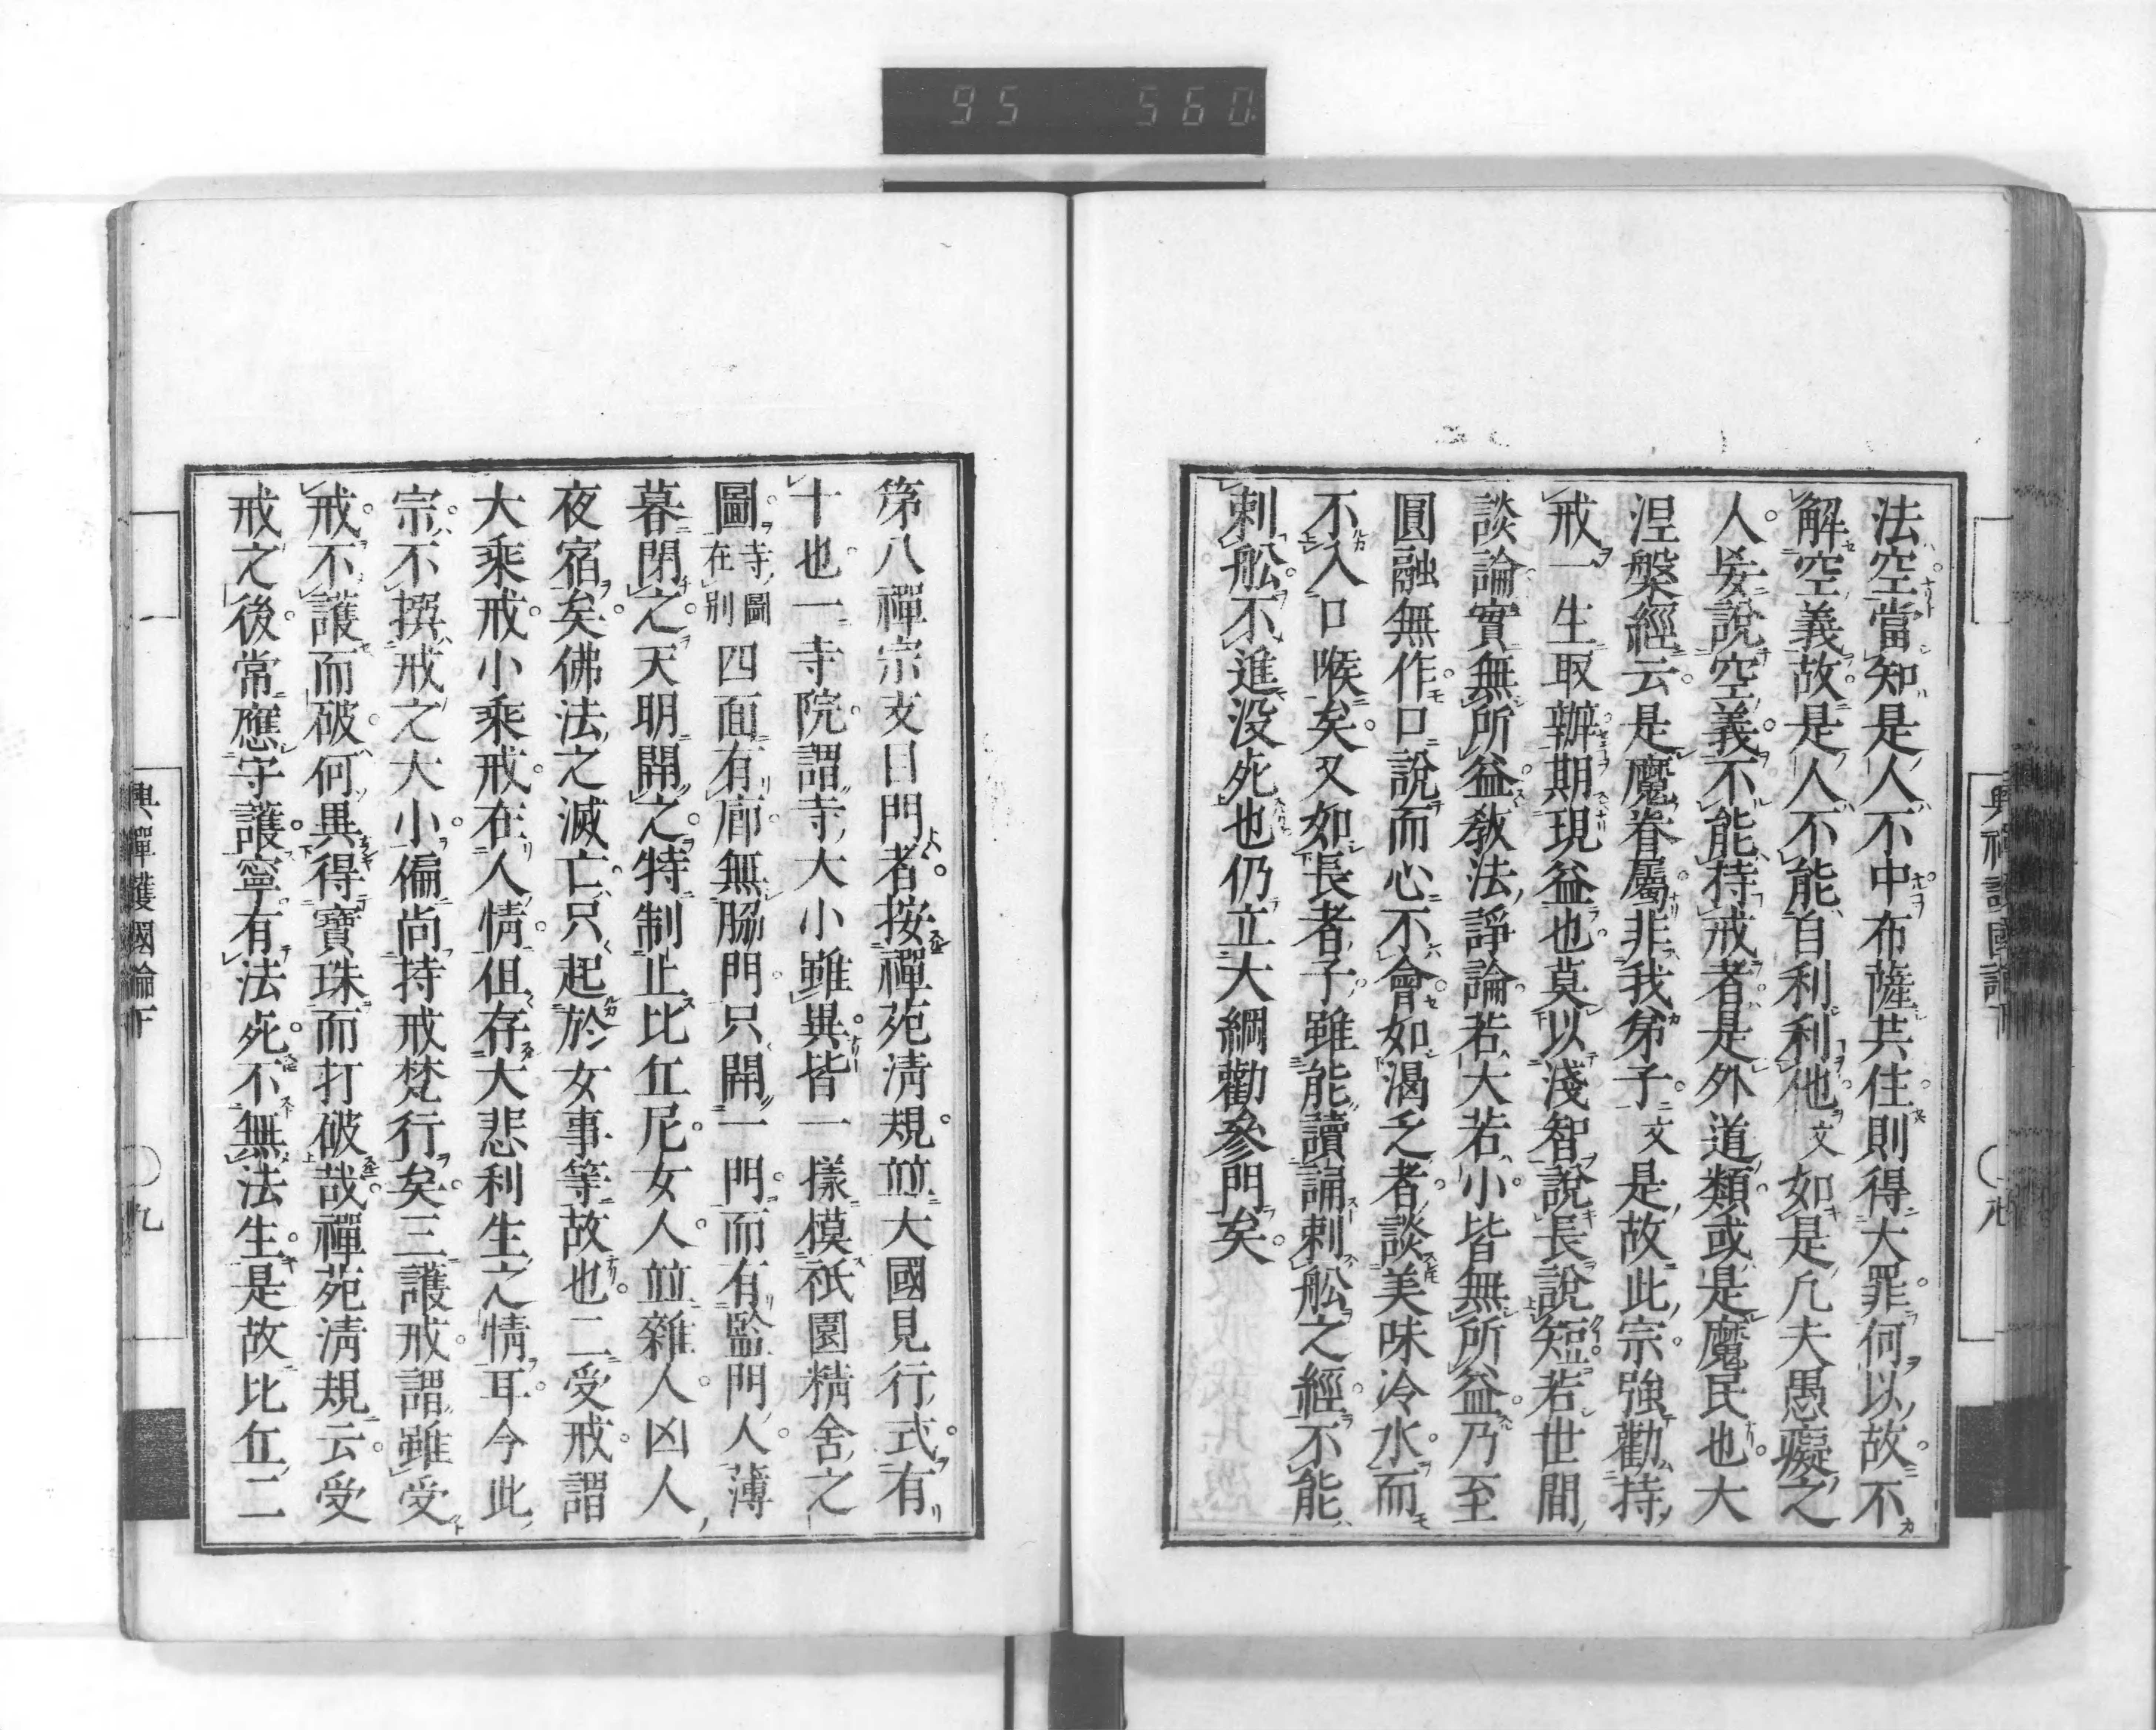 95 560
法空當知是人不中布薩共住則得大罪何以故不
解空義故是人不能自利利他文如是凢夫愚癡之
人妄說空義不能持戒者是外道類或是魔民也大
涅槃經云是魔眷屬非我弟子文是故此宗強勸持
戒一生取辦期現益也莫以淺智說長說短若世間
談論實無所益敎法諍論若大若小皆無所益乃至
圓融無作口說而心不會如渴乏者談美味冷水而
不入口喉矣又如長者子雖能讀誦刺舩之經不能
刺舩不進没死也仍立大綱勸參門矣
第八禪宗支目門者按禪苑淸規並大國見行式有
十也一寺院謂寺大小雖異皆一樣模祇園精舍之
圖寺圖在別四面有廊無脇門只開一門而有監門人薄
暮閉之天明開之特制止比丘尼女人並雜人凶人
夜宿矣佛法之滅亡只起於女事等故也二受戒謂
大乘戒小乘戒在人情但存大悲利生之情耳今此
宗不撰戒之大小偏尚持戒梵行矣三護戒謂雖受
戒不護而破何異得寶珠而打破哉禪苑淸規云受
戒之後常應守護寧有法死不無法生是故比丘二
興禪護國論下
九